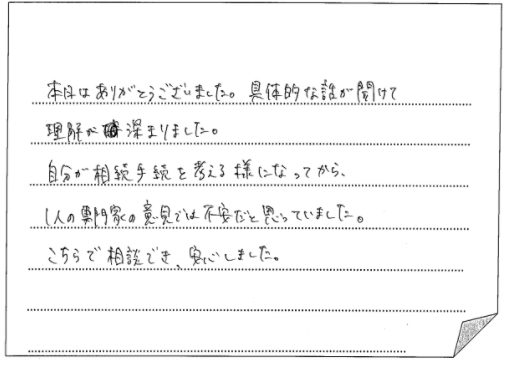 本日はありがとうございました。具体的な話が聞けて
理解が深まりました。
自分が相続手続を考える様になってから、
1人の専門家の意見では不安だと思っていました。
こちらで相談でき、安心しました。